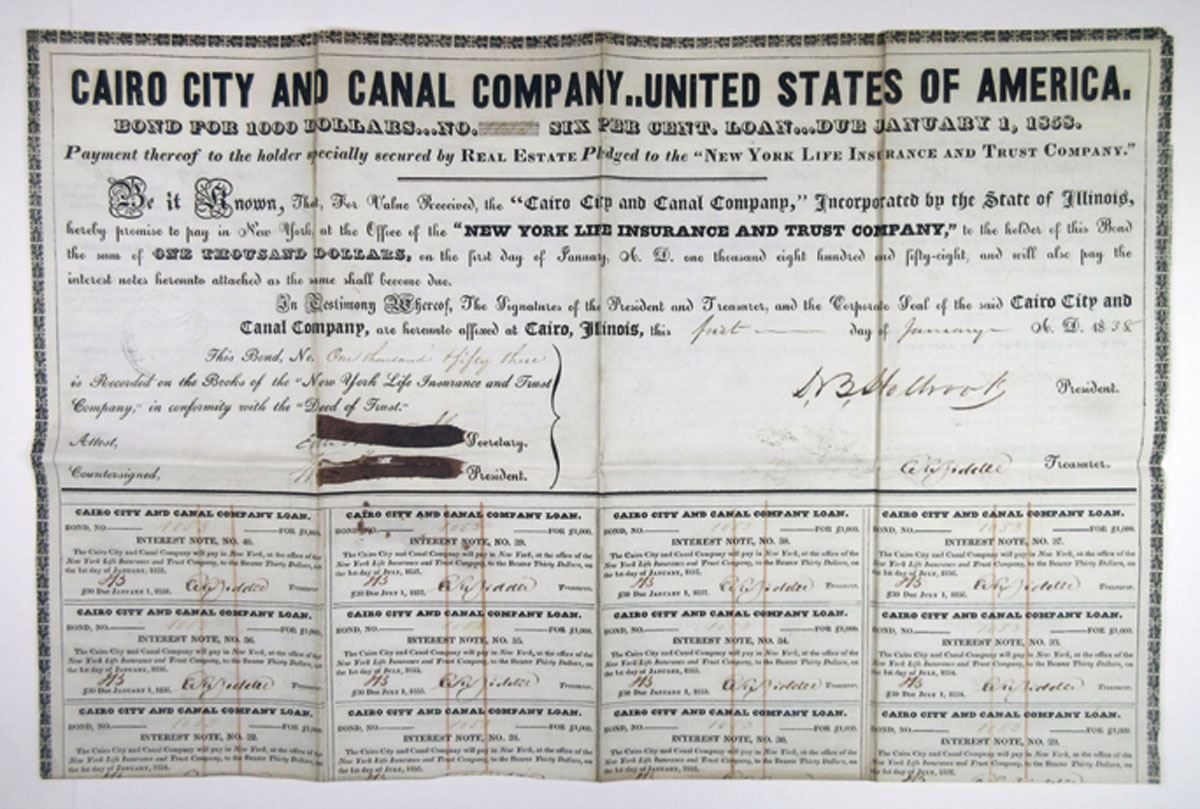 CAIRO CITY AND CANAL COMPANY..UNITED STATES OF AMERICA.
BOND FOR 1000 DOLLARS...NO. SIX PER CENT. LOAN...DUE JANUARY 1, 1858.
Payment thereof to the holder specially secured by REAL ESTATE Pledged to the "NEW YORK LIFE INSURANCE AND TRUST COMPANY."
Be it Known, That, For Value Received, the "Cairo City and Canal Company," Incorporated by the State of Illinois,
hereby promise to pay in New York, at the Office of the "NEW YORK LIFE INSURANCE AND TRUST COMPANY," to the holder of this Bond
the sum of ONE THOUSAND DOLLARS, on the first day of January, A. D. one thousand eight hundred and fifty-eight, and will also pay the
interest notes hereunto attached as the same shall become due.
In Testimony Whereof, The Signatures of the President and Treasurer, and the Corporate Seal of the said Cairo City and
Canal Company, are hereunto affixed at Cairo, Illinois, this first day of January A. D. 1838
This Bond, No. One thousand & fifty three
is Recorded on the Books of the "New York Life Insurance and Trust
Company," in conformity with the "Deed of Trust."
D.B. Holbrook President.
Attest, Secretary.
Countersigned, President.
Treasurer.
CAIRO CITY AND CANAL COMPANY LOAN. CAIRO CITY AND CANAL COMPANY LOAN. CAIRO CITY AND CANAL COMPANY LOAN. CAIRO CITY AND CANAL COMPANY LOAN.
BOND, NO. 1053 FOR $1,000. BOND, NO. 1053 FOR $1,000. BOND, NO. 1053 FOR $1,000. BOND, NO. 1053 FOR $1,000.
INTEREST NOTE, NO. 40. INTEREST NOTE, NO. 39. INTEREST NOTE, NO. 38. INTEREST NOTE, NO. 37.
The Cairo City and Canal Company will pay in New York, at the office of the The Cairo City and Canal Company will pay in New York, at the office of the The Cairo City and Canal Company will pay in New York, at the office of the The Cairo City and Canal Company will pay in New York, at the office of the
New York Life Insurance and Trust Company, to the Bearer Thirty Dollars, on New York Life Insurance and Trust Company, to the Bearer Thirty Dollars, on New York Life Insurance and Trust Company, to the Bearer Thirty Dollars, on New York Life Insurance and Trust Company, to the Bearer Thirty Dollars, on
the 1st day of JANUARY, the 1st day of JULY, 1857. the 1st day of JANUARY, 1857. the 1st day of JULY, 1856.
$30 DUE JANUARY 1, Treasurer. $30 DUE JULY 1, 1857. Treasurer. $30 DUE JANUARY 1, 1857. Treasurer. $30 DUE JULY 1, 1856. Treasurer.
CAIRO CITY AND CANAL COMPANY LOAN. CAIRO CITY AND CANAL COMPANY LOAN. CAIRO CITY AND CANAL COMPANY LOAN. CAIRO CITY AND CANAL COMPANY LOAN.
BOND, NO. 1053 FOR $1,000. BOND, NO. 1053 FOR $1,000. BOND, NO. 1053 FOR $1,000. BOND, NO. 1053 FOR $1,000.
INTEREST NOTE, NO. 36. INTEREST NOTE, NO. 35. INTEREST NOTE, NO. 34. INTEREST NOTE, NO. 33.
The Cairo City and Canal Company will pay in New York, at the office of the The Cairo City and Canal Company will pay in New York, at the office of the The Cairo City and Canal Company will pay in New York, at the office of the The Cairo City and Canal Company will pay in New York, at the office of the
New York Life Insurance and Trust Company, to the Bearer Thirty Dollars, on New York Life Insurance and Trust Company, to the Bearer Thirty Dollars, on New York Life Insurance and Trust Company, to the Bearer Thirty Dollars, on New York Life Insurance and Trust Company, to the Bearer Thirty Dollars, on
the 1st day of JANUARY, 1856. the 1st day of JULY, 1855. the 1st day of JANUARY, 1855. the 1st day of JULY, 1854.
$30 DUE JANUARY 1, 1856. Treasurer. $30 DUE JULY 1, 1855. Treasurer. $30 DUE JANUARY 1, 1855. Treasurer. $30 DUE JULY 1, 1854. Treasurer.
CAIRO CITY AND CANAL COMPANY LOAN. CAIRO CITY AND CANAL COMPANY LOAN. CAIRO CITY AND CANAL COMPANY LOAN. CAIRO CITY AND CANAL COMPANY LOAN.
BOND, NO. 1053 FOR $1,000. BOND, NO. 1053 FOR $1,000. BOND, NO. 1053 FOR $1,000. BOND, NO. 1053 FOR $1,000.
INTEREST NOTE, NO. 32. INTEREST NOTE, NO. 31. INTEREST NOTE, NO. 30. INTEREST NOTE, NO. 29.
The Cairo City and Canal Company will pay in New York, at the office of the The Cairo City and Canal Company will pay in New York, at the office of the The Cairo City and Canal Company will pay in New York, at the office of the The Cairo City and Canal Company will pay in New York, at the office of the
New York Life Insurance and Trust Company, to the Bearer Thirty Dollars, on New York Life Insurance and Trust Company, to the Bearer Thirty Dollars, on New York Life Insurance and Trust Company, to the Bearer Thirty Dollars, on New York Life Insurance and Trust Company, to the Bearer Thirty Dollars, on
the 1st day of JANUARY, 1854. the 1st day of JULY, the 1st day of JANUARY, the 1st day of JULY,